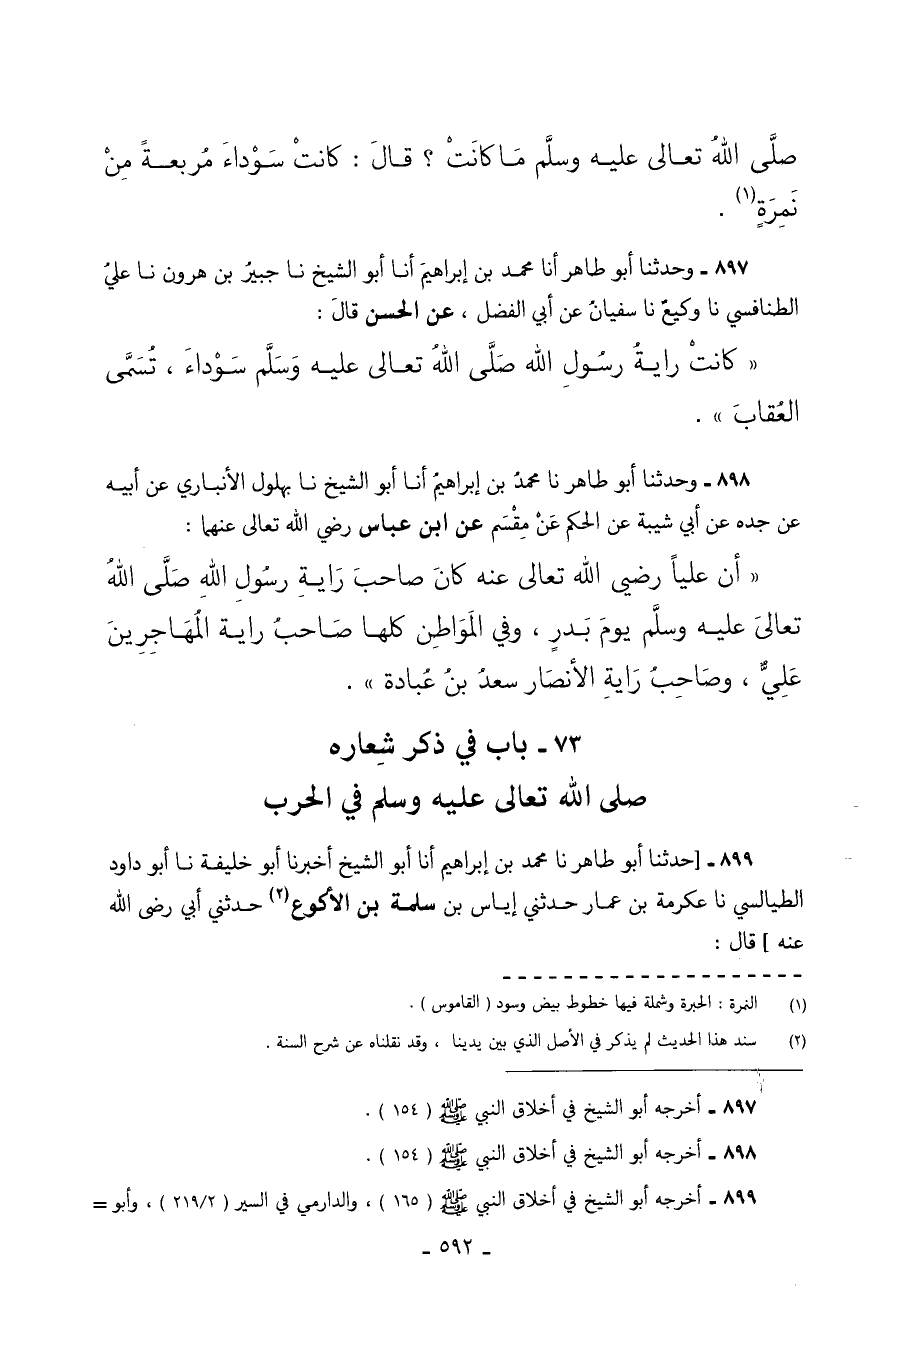 صلَّى اللهُ تعالى عليه وسلَّم مَا كانَتْ ؟ قالَ : كانتْ سَوْداءَ مُربعةً مِنْ
نَمِرَةٍ(١) .
٨٩٧ ـ وحدثنا أبو طاهر أنا محمد بن إبراهيمَ أنا أبو الشيخ نا جبيرُ بن هرون نا عليُ
الطنافسي نا وكيعٌ نا سفيانُ عن أبي الفضل ، عن الحسن قالَ :
« كانتْ رايةُ رسُولِ الله صَلَّى اللهُ تعالى عليه وَسَلَّم سَوْداءَ ، تُسَمَّى
العُقابَ » .
٨٩٨ ـ وحدثنا أبو طاهر نا محمدُ بن إبراهيمُ أنا أبو الشيخ نا بهلول الأنباري عن أبيه
عن جده عن أبي شيبة عن الحكم عَنْ مِقْسَم عن ابن عباس رضي الله تعالى عنهما :
« أن علياً رضي الله تعالى عنه كانَ صاحبَ رَايةِ رسُولِ اللهِ صَلَّى اللهُ
تعالىَ عليه وسلَّم يومَ بَدرٍ ، وفي المَواطِن كلها صَاحبُ راية المُهَاجِرِينَ
عَلِيٌّ ، وصَاحِبُ رَايةِ الأنصَار سعدُ بنُ عُبادة » .
٧٣ ـ باب في ذكر شِعاره
صلى الله تعالى عليه وسلم في الحرب
٨٩٩ ـ [حدثنا أبو طاهر نا محمد بن إبراهيم أنا أبو الشيخ أخبرنا أبو خليفة نا أبو داود
الطيالسي نا عكرمة بن عمار حدثني إياس بن سلمة بن الأكوع(٢) حدثني أبي رضى الله
عنه ] قال :
(١) النمرة : الحبرة وشملة فيها خطوط بيض وسود ( القاموس ) .
(٢) سند هذا الحديث لم يذكر في الأصل الذي بين يدينا ، وقد نقلناه عن شرح السنة .
٨٩٧ ـ أخرجه أبو الشيخ في أخلاق النبي ﷺ ( ١٥٤ ) .
٨٩٨ ـ أخرجه أبو الشيخ في أخلاق النبي ﷺ ( ١٥٤ ) .
٨٩٩ ـ أخرجه أبو الشيخ في أخلاق النبي ﷺ ( ١٦٥ ) ، والدارمي في السير ( ٢١٩/٢ ) ، وأبو =
ـ ٥٩٢ ـ